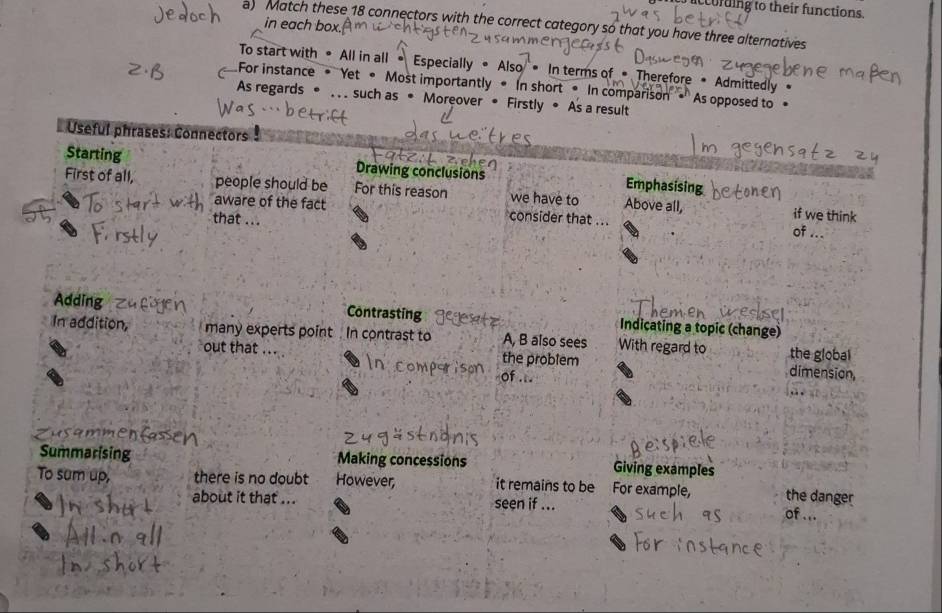 according to their functions.
jedoch
a) Match these 18 connectors with the correct category so that you have three alternatives
was betrifft
in each box. Am wichtigsten zusammengefasst
Deswegen zugegebene maßen
To start with • All in all • Especially • Also • In terms of • Therefore • Admittedly •
z.B
For instance • Yet • Most importantly • In short • In comparison • As opposed to •
im vergleich
As regards • ... such as • Moreover • Firstly • As a result
Was...betrifft
das weitres
Im gegensatz zu
Useful phrases: Connectors !
Starting
First of all,
To start with
Firstly
people should be
aware of the fact
that ...
ziehen
Drawing conclusions
For this reason
we have to
consider that ...
Emphasising betonen
Above all,
if we think
of ...
Adding zufügen
In addition,
many experts point
out that ...
Contrasting gegesatz
In contrast to
In comparison
A, B also sees
the problem
of ...
Themen
Indicating a topic (change)
With regard to
the global
dimension,
...
zusammenfassen
Summarising
To sum up,
In short
All in all
In short
there is no doubt
about it that ...
zugästndnis
Making concessions
However,
it remains to be
seen if ...
Beispiele
Giving examples
For example,
such as
For instance
the danger
of ...